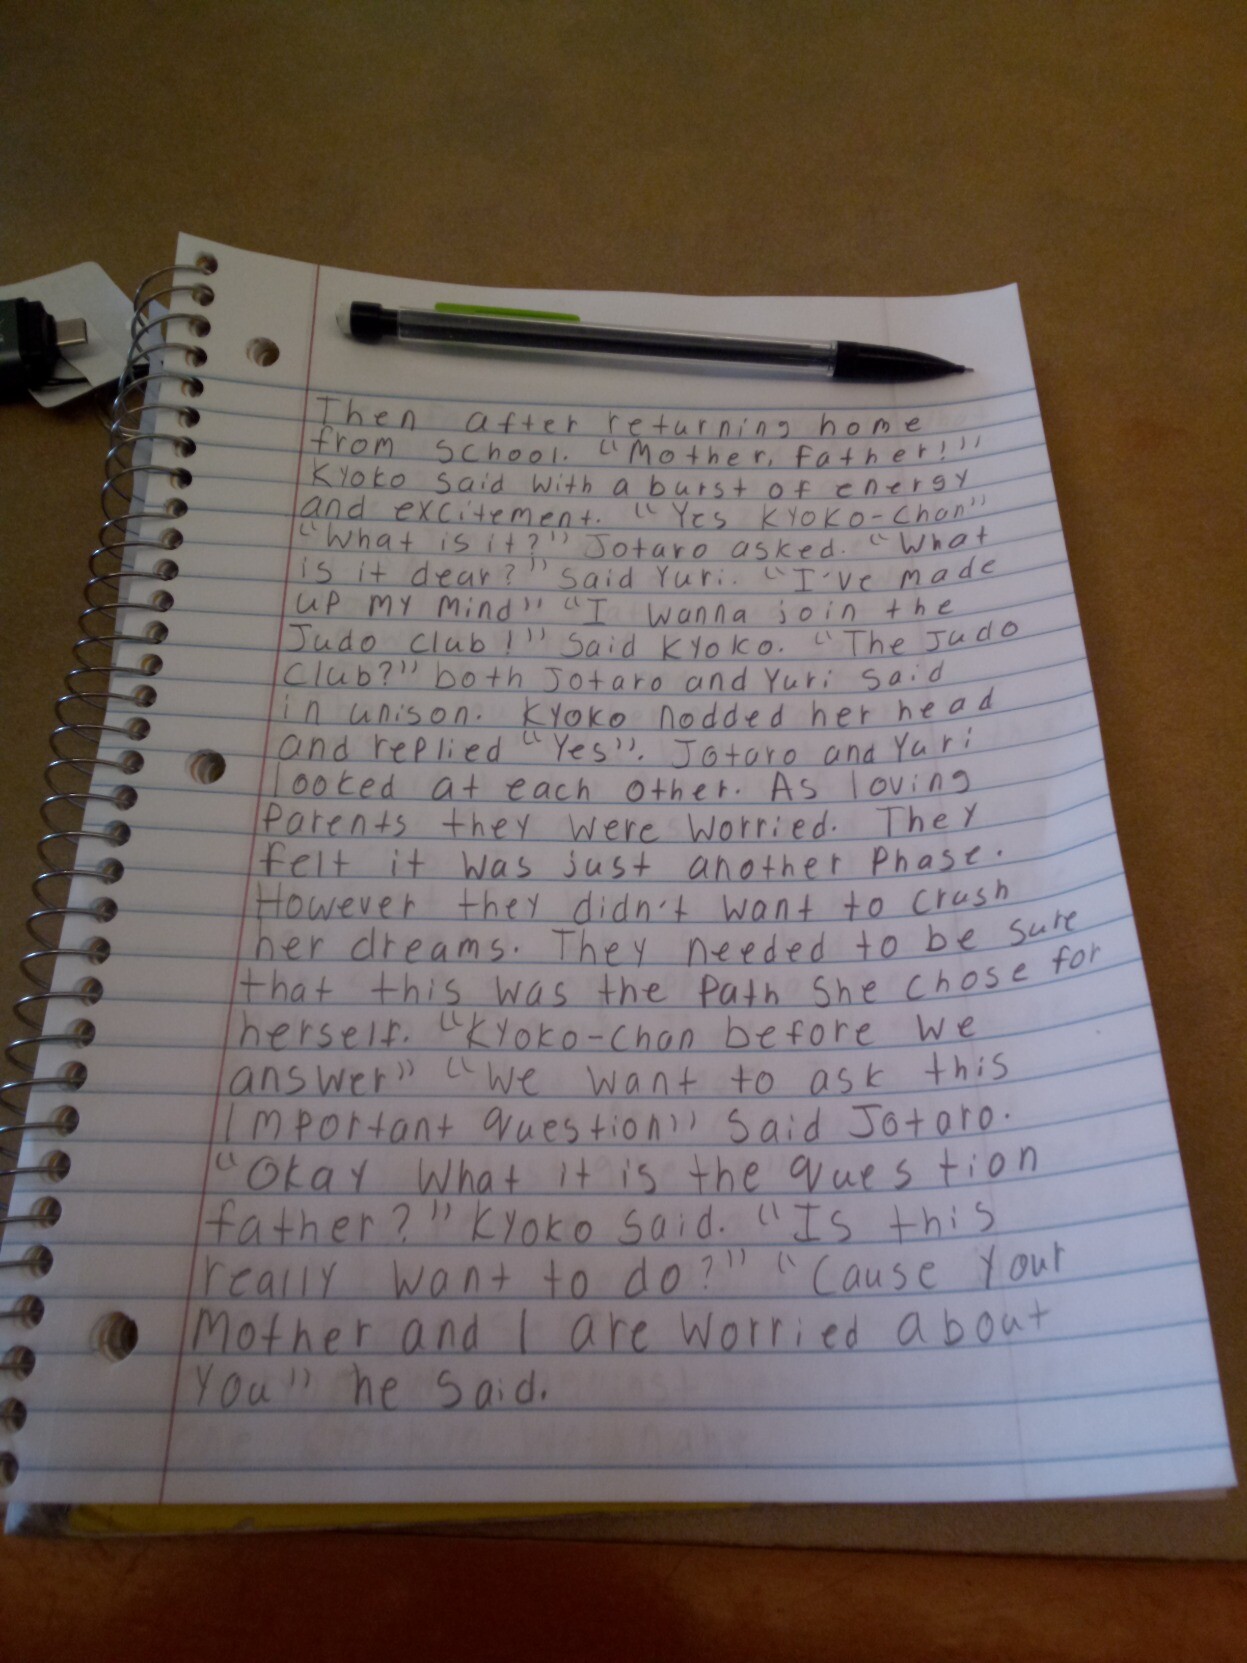 Then after returning home
from school. "Mother, father!"
Kyoko said with a burst of energy
and excitement. "Yes Kyoko-Chan"
"What is it?" Jotaro asked. "What
is it dear?" said Yuri. "I've made
up my mind" "I wanna join the
Judo club!" said Kyoko. "The Judo
Club?" both Jotaro and Yuri said
in unison. Kyoko nodded her head
and replied "Yes". Jotaro and Yuri
looked at each other. As loving
Parents they were worried. They
felt it was just another phase.
However they didn't want to crush
her dreams. They needed to be sure
that this was the path she chose for
herself. "Kyoko-Chan before we
answer" "We want to ask this
important question" said Jotaro.
"Okay what it is the question
father?" Kyoko said. "Is this
really want to do?" "Cause your
Mother and I are worried about
you" he said.